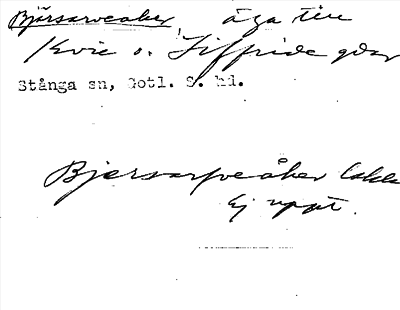 Björsarveåker äga till
Kvie o. Tiffride gdar
Stånga sn, Gotl. S. hd.
Bjersarveåker
Ej uppt.